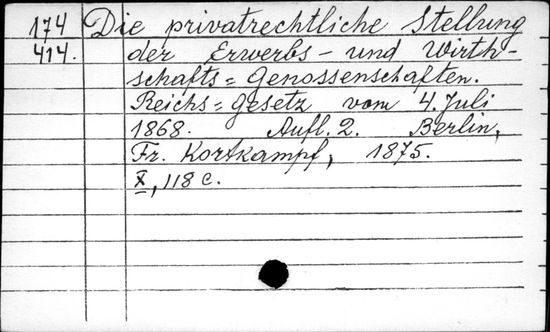 174 Die privatrechtliche Stellung
414. der Erwerbs- und Wirth-
schafts=Genossenschaften.
Reichs=Gesetz vom 4. Juli
1868. Aufl. 2. Berlin,
Fr. Kortkampf, 1875.
X, 118 c.